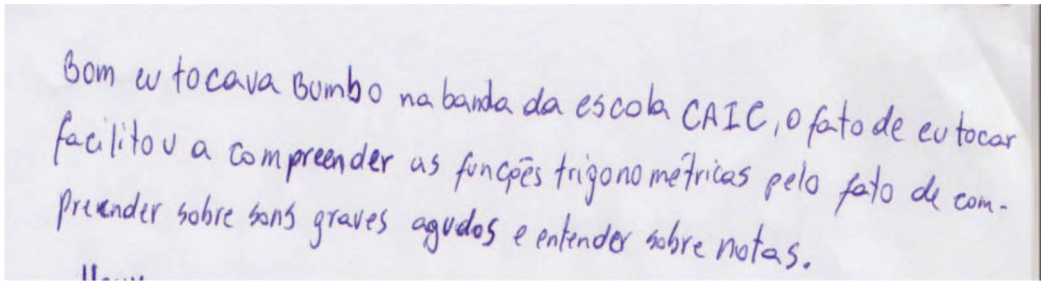 Bom eu tocava Bumbo na banda da escola CAIC, o fato de eu tocar
facilitou a compreender as funções trigonométricas pelo fato de com-
preender sobre sons graves agudos e entender sobre notas.